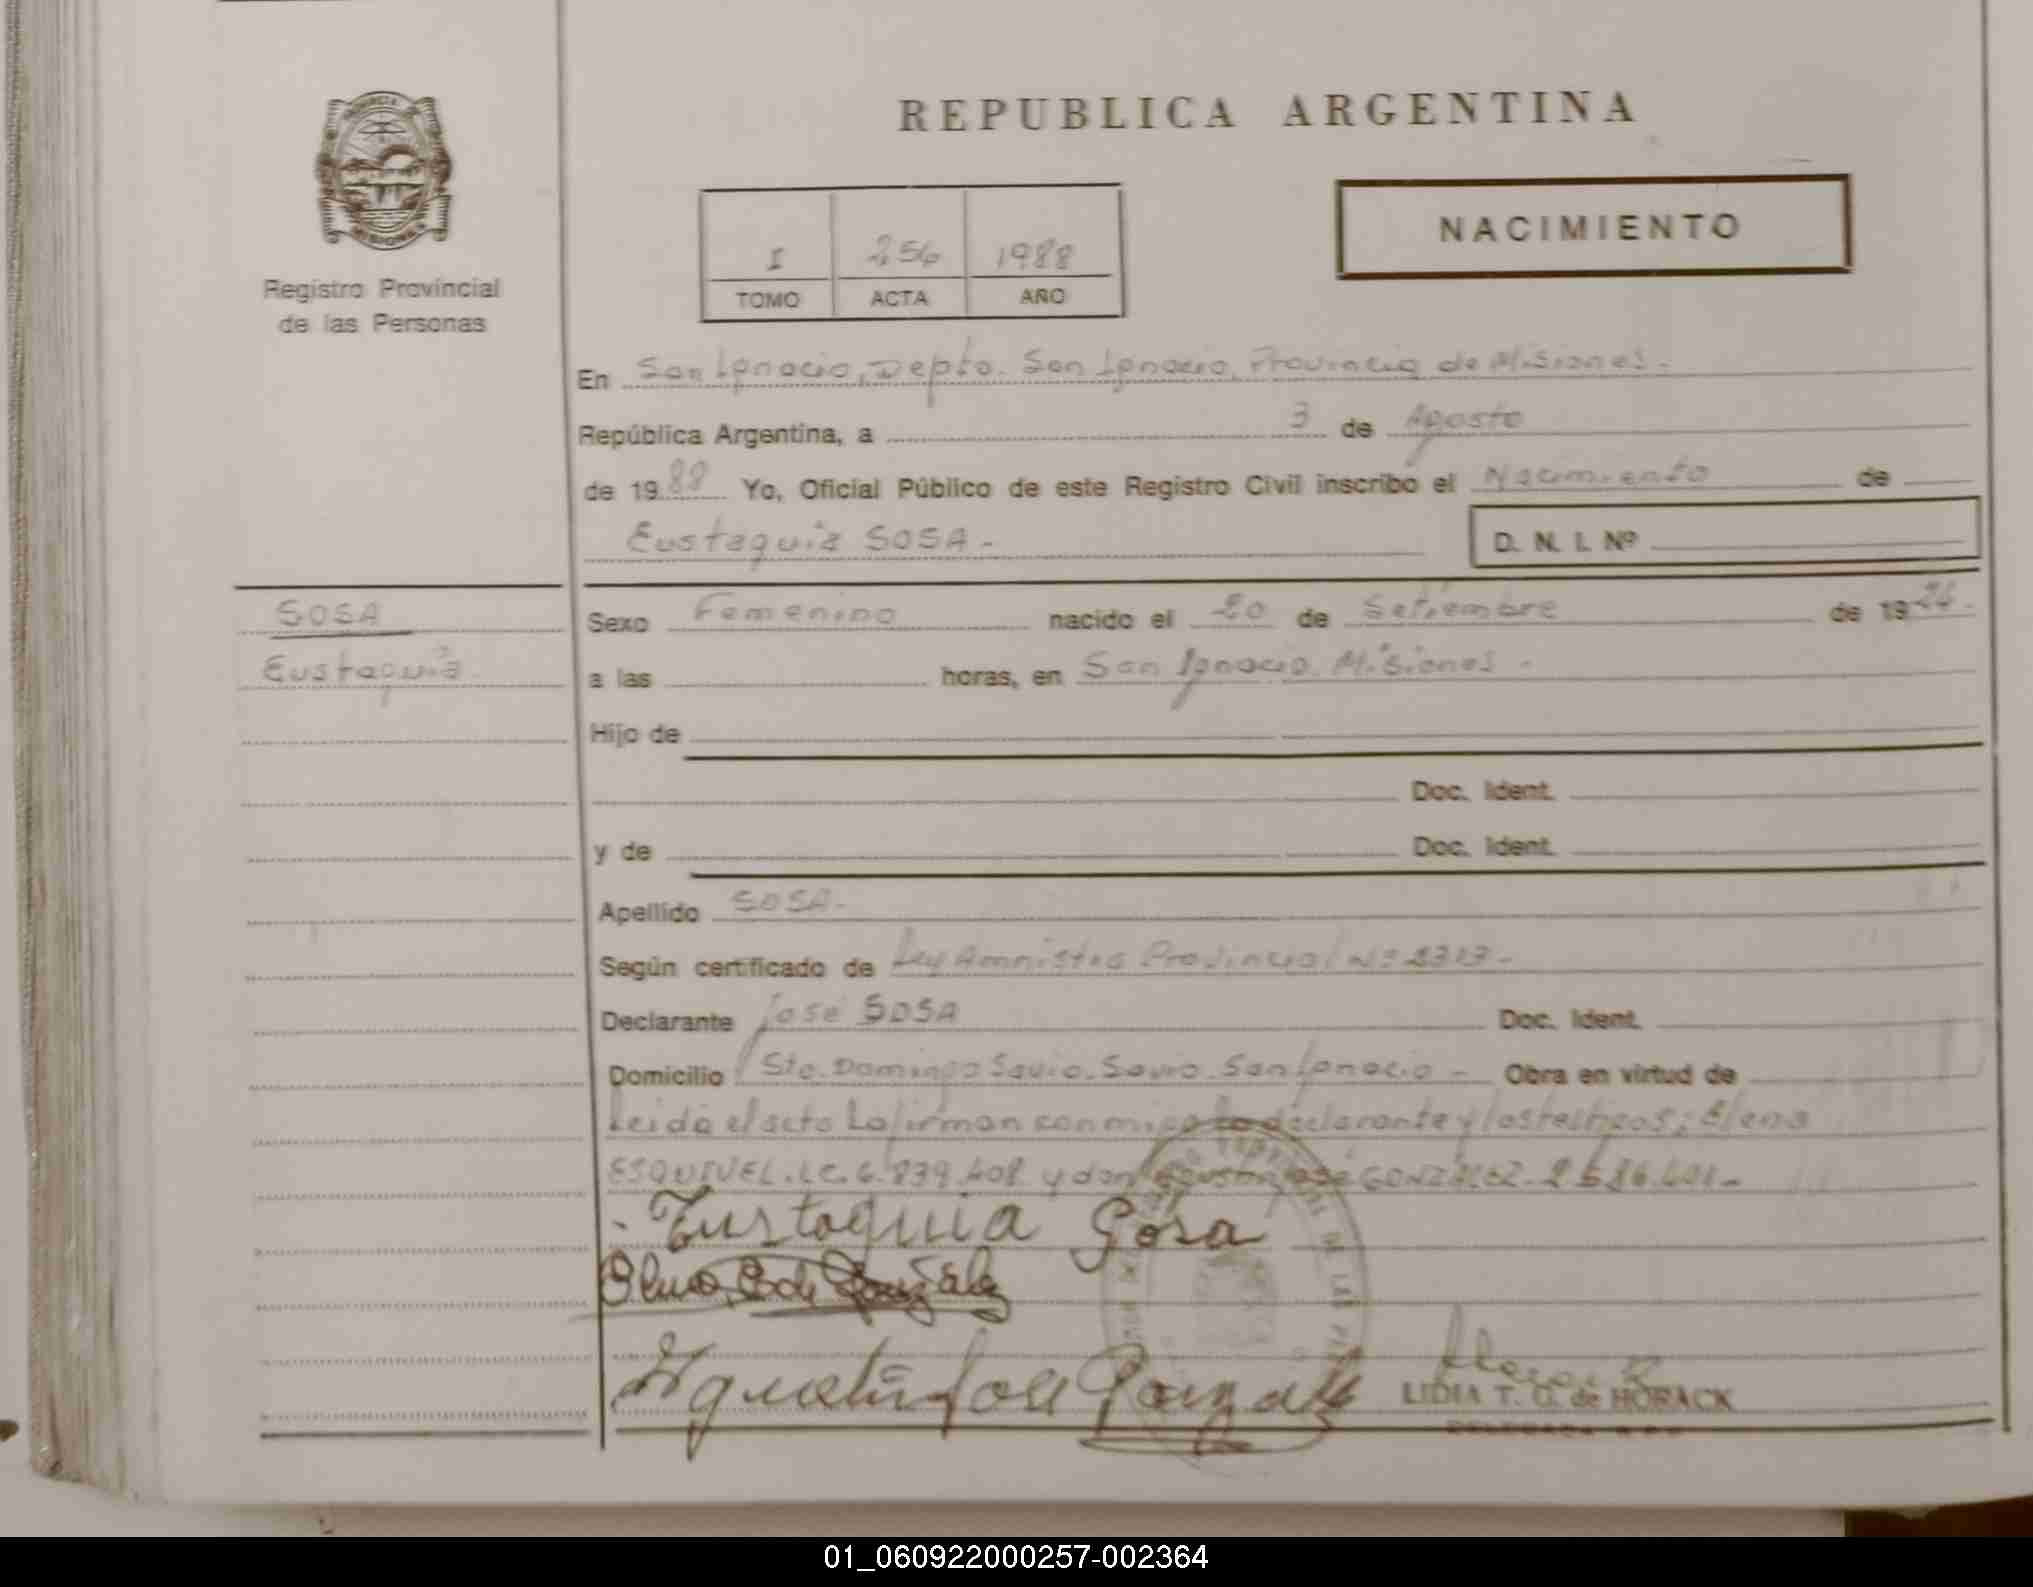 REPUBLICA ARGENTINA
NACIMIENTO
I 256 1988
TOMO ACTA AÑO
Registro Provincial
de las Personas
En San Ignacio, Depto. San Ignacio, Provincia de Misiones.-
República Argentina, a 3 de Agosto
de 1988 Yo, Oficial Público de este Registro Civil inscribo el Nacimiento de
Eustaquia SOSA.-
D. N. I. Nº
SOSA
Eustaquia.
Sexo Femenino nacido el 20 de Setiembre de 19
a las horas, en San Ignacio. Misiones.-
Hijo de
Doc. Ident.
y de Doc. Ident.
Apellido SOSA.-
Según certificado de Ley Amnistia Provincial Nº 2313.-
Declarante José SOSA Doc. Ident.
Domicilio Sto. Domingo Savio. Savio. San Ignacio.- Obra en virtud de
Leida el acta La firman conmigo declarante y los testigos; Elena
ESQUIVEL. L.C. 6.839.408 y don Agustin José GONZALEZ.
Eustaquia Sosa
Agustín José Gonzalez
LIDIA T. O. de HORACK
01_060922000257-002364